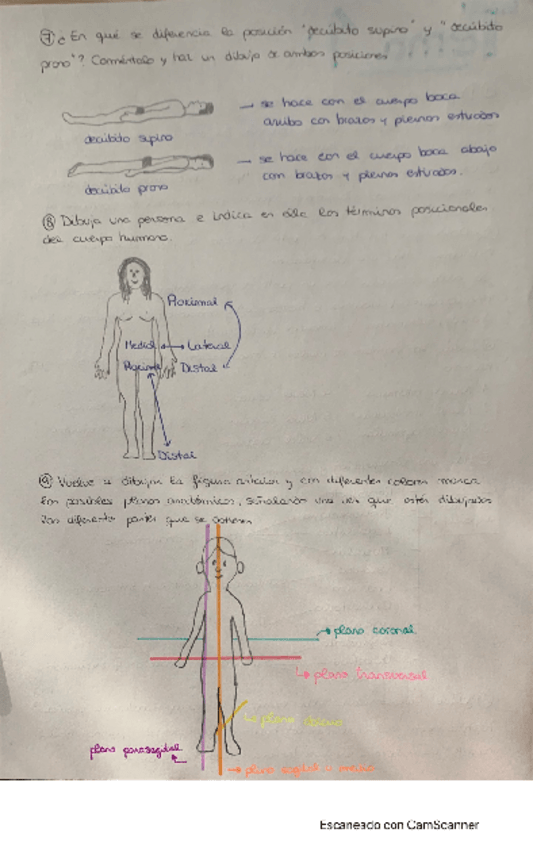 ⑦ ¿En qué se diferencia la posición "decúbito supino" y "decúbito
prono"? Coméntalo y haz un dibujo de ambas posiciones
→ se hace con el cuerpo boca
arriba con brazos y piernas estirados
decúbito supino
→ se hace con el cuerpo boca abajo
con brazos y piernas estirados.
decúbito prono
⑧ Dibuja una persona e indica en ella los términos posicionales
del cuerpo humano.
Proximal
Medial ↔ Lateral
Proximal Distal
Distal
⑨ Vuelve a dibujar la figura anterior y con diferentes colores marca
los posibles planos anatómicos, señalando una vez que estén dibujados
las diferentes partes que se obtienen
→ plano coronal
↳ plano transversal
↳ plano oblicuo
plano parasagital
→ plano sagital o medio
Escaneado con CamScanner